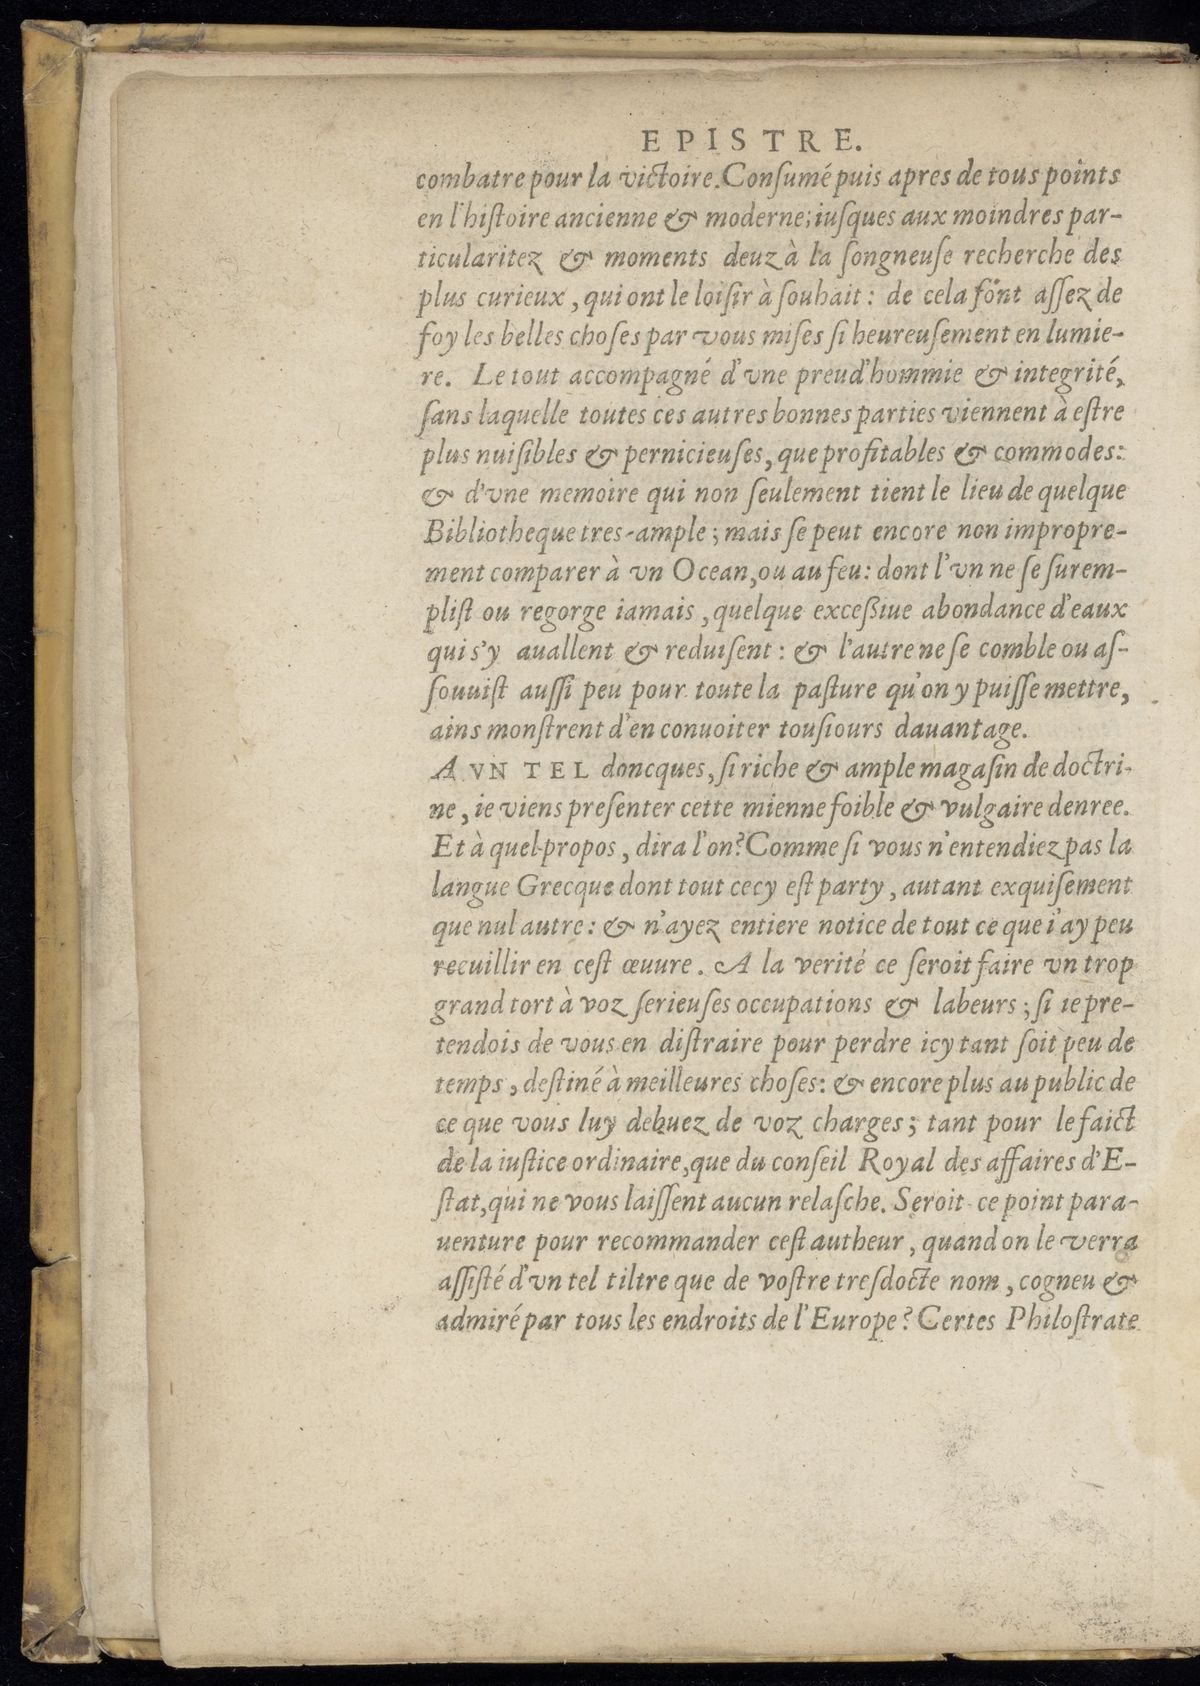 EPISTRE.
combatre pour la victoire. Conſumé puis apres de tous points
en l'hiſtoire ancienne & moderne; iuſques aux moindres par-
ticularitez & moments deuz à la ſongneuſe recherche des
plus curieux, qui ont le loiſir à ſouhait: de cela font aſſez de
foy les belles choſes par vous miſes ſi heureuſement en lumie-
re. Le tout accompagné d'vne preud'hommie & integrité,
ſans laquelle toutes ces autres bonnes parties viennent à eſtre
plus nuiſibles & pernicieuſes, que profitables & commodes:
& d'vne memoire qui non ſeulement tient le lieu de quelque
Bibliotheque tres-ample; mais ſe peut encore non impropre-
ment comparer à vn Ocean, ou au feu: dont l'vn ne ſe ſurem-
pliſt ou regorge iamais, quelque exceßiue abondance d'eaux
qui s'y auallent & reduiſent: & l'autre ne ſe comble ou aſ-
ſouuiſt auſſi peu pour toute la paſture qu'on y puiſſe mettre,
ains monſtrent d'en conuoiter touſiours dauantage.
A VN TEL doncques, ſi riche & ample magaſin de doctri-
ne, ie viens preſenter cette mienne foible & vulgaire denree.
Et à quel propos, dira l'on? Comme ſi vous n'entendiez pas la
langue Grecque dont tout cecy eſt party, autant exquiſement
que nul autre: & n'ayez entiere notice de tout ce que i'ay peu
recuillir en ceſt œuure. A la verité ce ſeroit faire vn trop
grand tort à voz ſerieuſes occupations & labeurs; ſi ie pre-
tendois de vous en diſtraire pour perdre icy tant ſoit peu de
temps, deſtiné à meilleures choſes: & encore plus au public de
ce que vous luy debuez de voz charges; tant pour le faict
de la iuſtice ordinaire, que du conſeil Royal des affaires d'E-
ſtat, qui ne vous laiſſent aucun relaſche. Seroit-ce point para-
uenture pour recommander ceſt autheur, quand on le verra
aſſiſté d'vn tel tiltre que de voſtre treſdocte nom, cogneu &
admiré par tous les endroits de l'Europe? Certes Philoſtrate